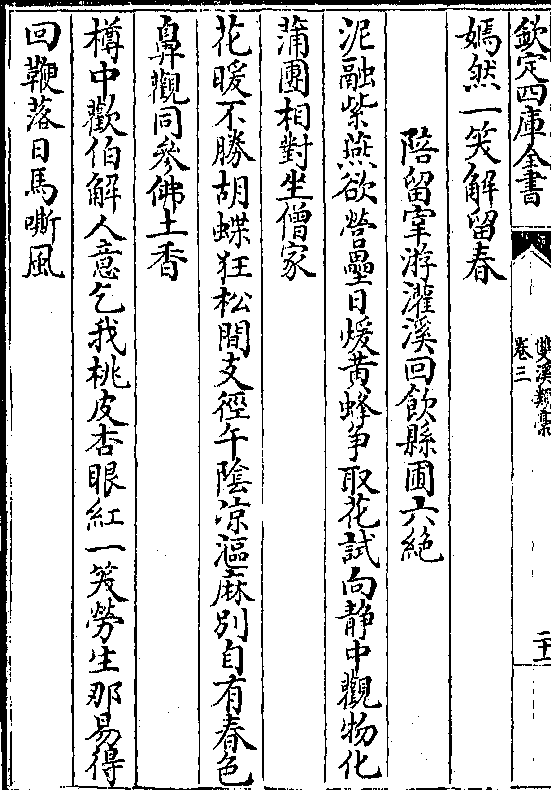 欽定四庫全書
雙溪類藁
卷三
二十一
嫣然一笑解留春
陪留宰游灌溪回飲縣圃六絶
泥融紫燕欲營壘日煖黄蜂爭取花試向静中觀物化
蒲團相對坐僧家
花暖不勝胡蝶狂松間支徑午陰凉漚麻别自有春色
鼻觀同參佛土香
樽中歡伯解人意乞我桃皮杏眼紅一笑勞生那易得
回鞭落日馬嘶風